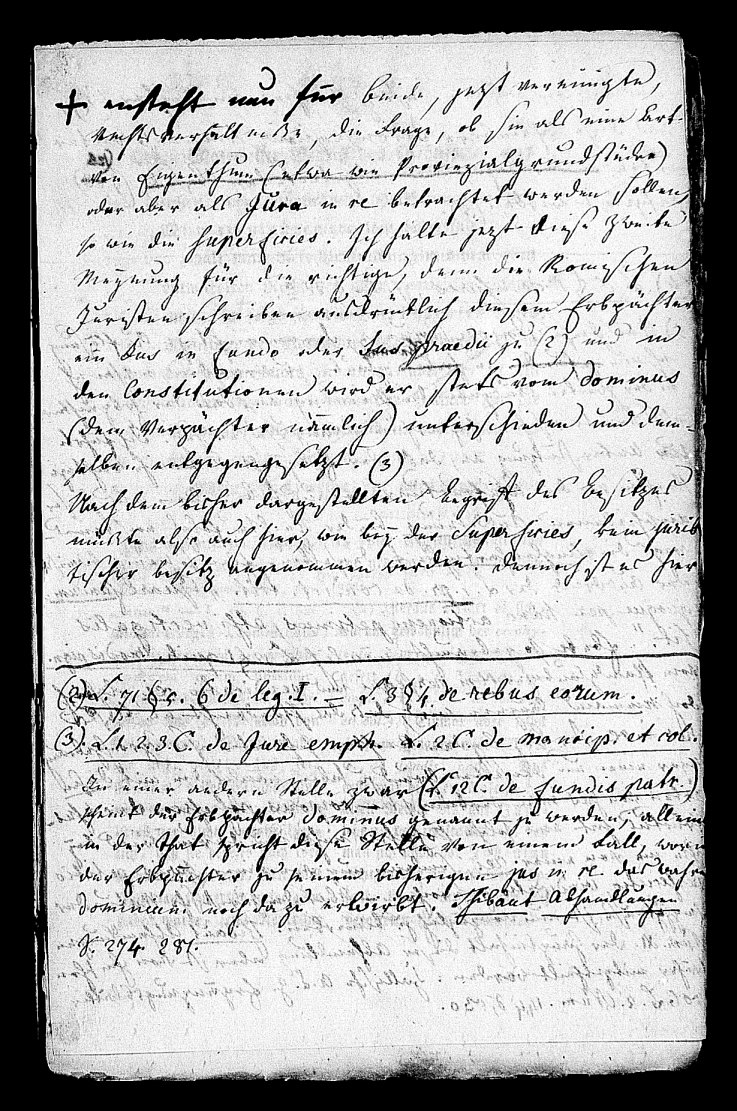 + ensteht nun für beide, jezt vereinigte,
Rechtsverhältniße, die Frage, ob sie als eine Art
von Eigenthum (etwa wie Provinzialgrundstücke)
oder aber als Jura in re betrachtet werden sollen,
so wie die Superficies. Ich halte jezt diese zweite
Meynung für die richtige, denn die Römischen
Juristen schreiben ausdrücklich diesem Erbpächter
ein Jus in fundo oder Jus praedii zu (2) und in
den Constitutionen wird er stets vom Dominus
(dem Verpächter nämlich) unterschieden und dem-
selben entgegengesetzt. (3)
Nach dem bisher dargestellten Begriff des Besitzes
müßte also auch hier, wie bey der Superficies, kein juris
tischer Besitz angenommen werden. Dennoch ist es hier
(2). L. 71 § 5. 6 de leg. I. — L. 3 § 4. de rebus eorum.
(3). L. 1. 2. 3. C. de Jure emph. L. 2 C. de mancip. et col.
In einer andern Stelle zwar (L. 12 C. de fundis patr.)
scheint der Erbpächter Dominus genannt zu werden, allein
in der That spricht diese Stelle von einem Fall, worin
der Erbpächter zu seinem bisherigen jus in re das wahre
Dominium noch dazu erwirbt. Thibaut Abhandlungen
S. 274. 287.